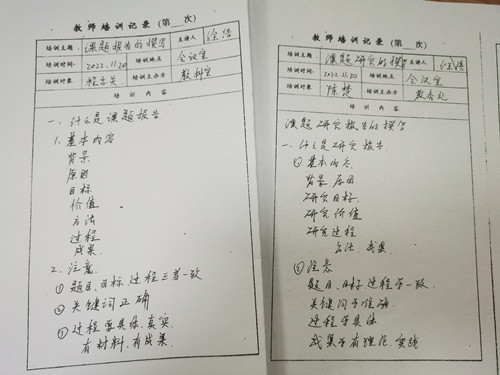 教师培训记录（第 次）
培训主题 课题报告的撰写 主讲人 徐倩
培训时间: 2022.11.20 培训地点 会议室
培训对象 程志 培训主办方 教科室
培训内容
一、什么是课题报告
1.基本内容
背景
原因
目标
价值
方法
过程
成果
2.注意
①题目、目标、过程三者一致
②关键词正确
③过程要具体、真实
有材料、有成果
教师培训记录（第 次）
培训主题 课题研究的撰写 主讲人 徐倩
培训时间: 2022.11.20 培训地点 会议室
培训对象 陈楚 培训主办方 教务处
培训内容
课题研究报告的撰写
一、什么是研究报告
①基本内容
背景 原因
研究目标
研究价值
研究过程
方法、成果
②注意
题目、目标、过程要一致
关键词要准确
过程要具体
成果要有理论、实践